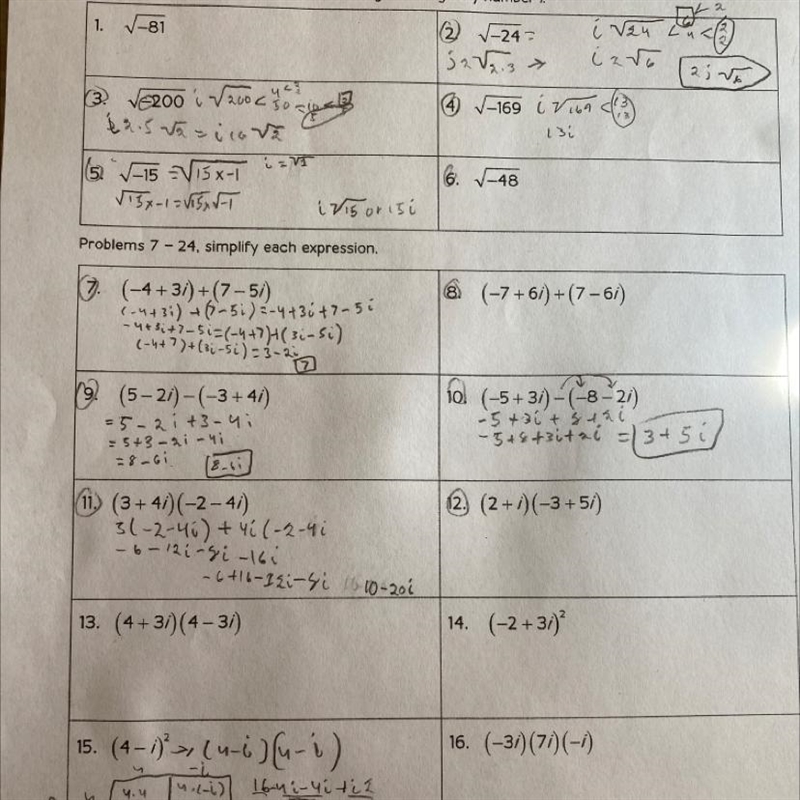 1. √-81
2. √-24 = i √24 < 4 < 2 2
i 2 √6
2i √6
3. √-200 i √200 <
= i 10 √2
4. √-169 i √169 < 13 13
13i
5. √-15 = √15 x -1 i = √-1
√15 x -1 = √15 x √-1 i √15 or 15i
6. √-48
Problems 7 – 24, simplify each expression.
7. (-4 + 3i) + (7 - 5i)
(-4+3i) + (7-5i) = -4+3i+7-5i
-4+3i+7-5i = (-4+7)+(3i-5i)
(-4+7)+(3i-5i) = 3-2i
7
8. (-7 + 6i) + (7 - 6i)
9. (5 - 2i) - (-3 + 4i)
= 5 - 2i + 3 - 4i
= 5+3 -2i -4i
= 8-6i 8-6i
10. (-5 + 3i) - (-8 - 2i)
-5 + 3i + 8 + 2i
-5+8+3i+2i = 3 + 5i
11. (3 + 4i)(-2 - 4i)
3(-2-4i) + 4i(-2-4i
-6 -12i -8i -16i
-6+16-12i-8i 10-20i
12. (2 + i)(-3 + 5i)
13. (4 + 3i)(4 - 3i)
14. (-2 + 3i)²
15. (4 - i)² → (4-i)(4-i)
4 -i
4 4·4 4·(-i) 16-4i-4i+i2
16. (-3i)(7i)(-i)